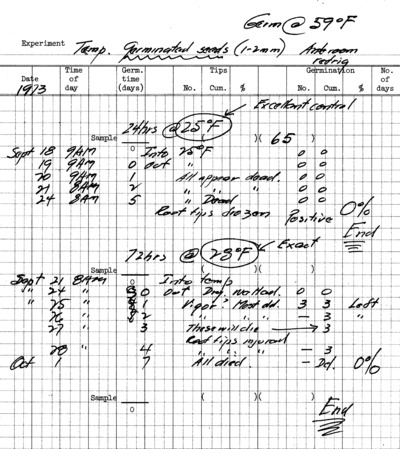 Germ @ 59°F
Experiment Temp. Germinated seeds (1-2mm) Anteroom
Date Time of day Germ. time (days) Tips No. Cum. % Germination No. Cum. % No. of days
1973
Excellent control
24hrs @ 25°F
Sample )( 65 )
0
Sept 18 9AM Into 25°F 0 0
19 9AM 0 Out " 0 0
20 9AM 1 All appear dead. 0 0
21 8AM 2 " " " 0 0
24 8AM 5 " Dead 0 0
Root tips frozen Positive 0%
End
72hrs @ 28°F Exact
Sept 21 8AM 0 Into temp
" 24 " 0 Out 0 0
" 25 " 1 Vigor? Most dd. 3 3 Left
26 " 2 " " " " — 3 "
27 " 3 These will die → 3
Root tips injured
28 " 4 " " " — 3
Oct 1 " 7 All died. — Del. 0%
Sample )( )
0
End